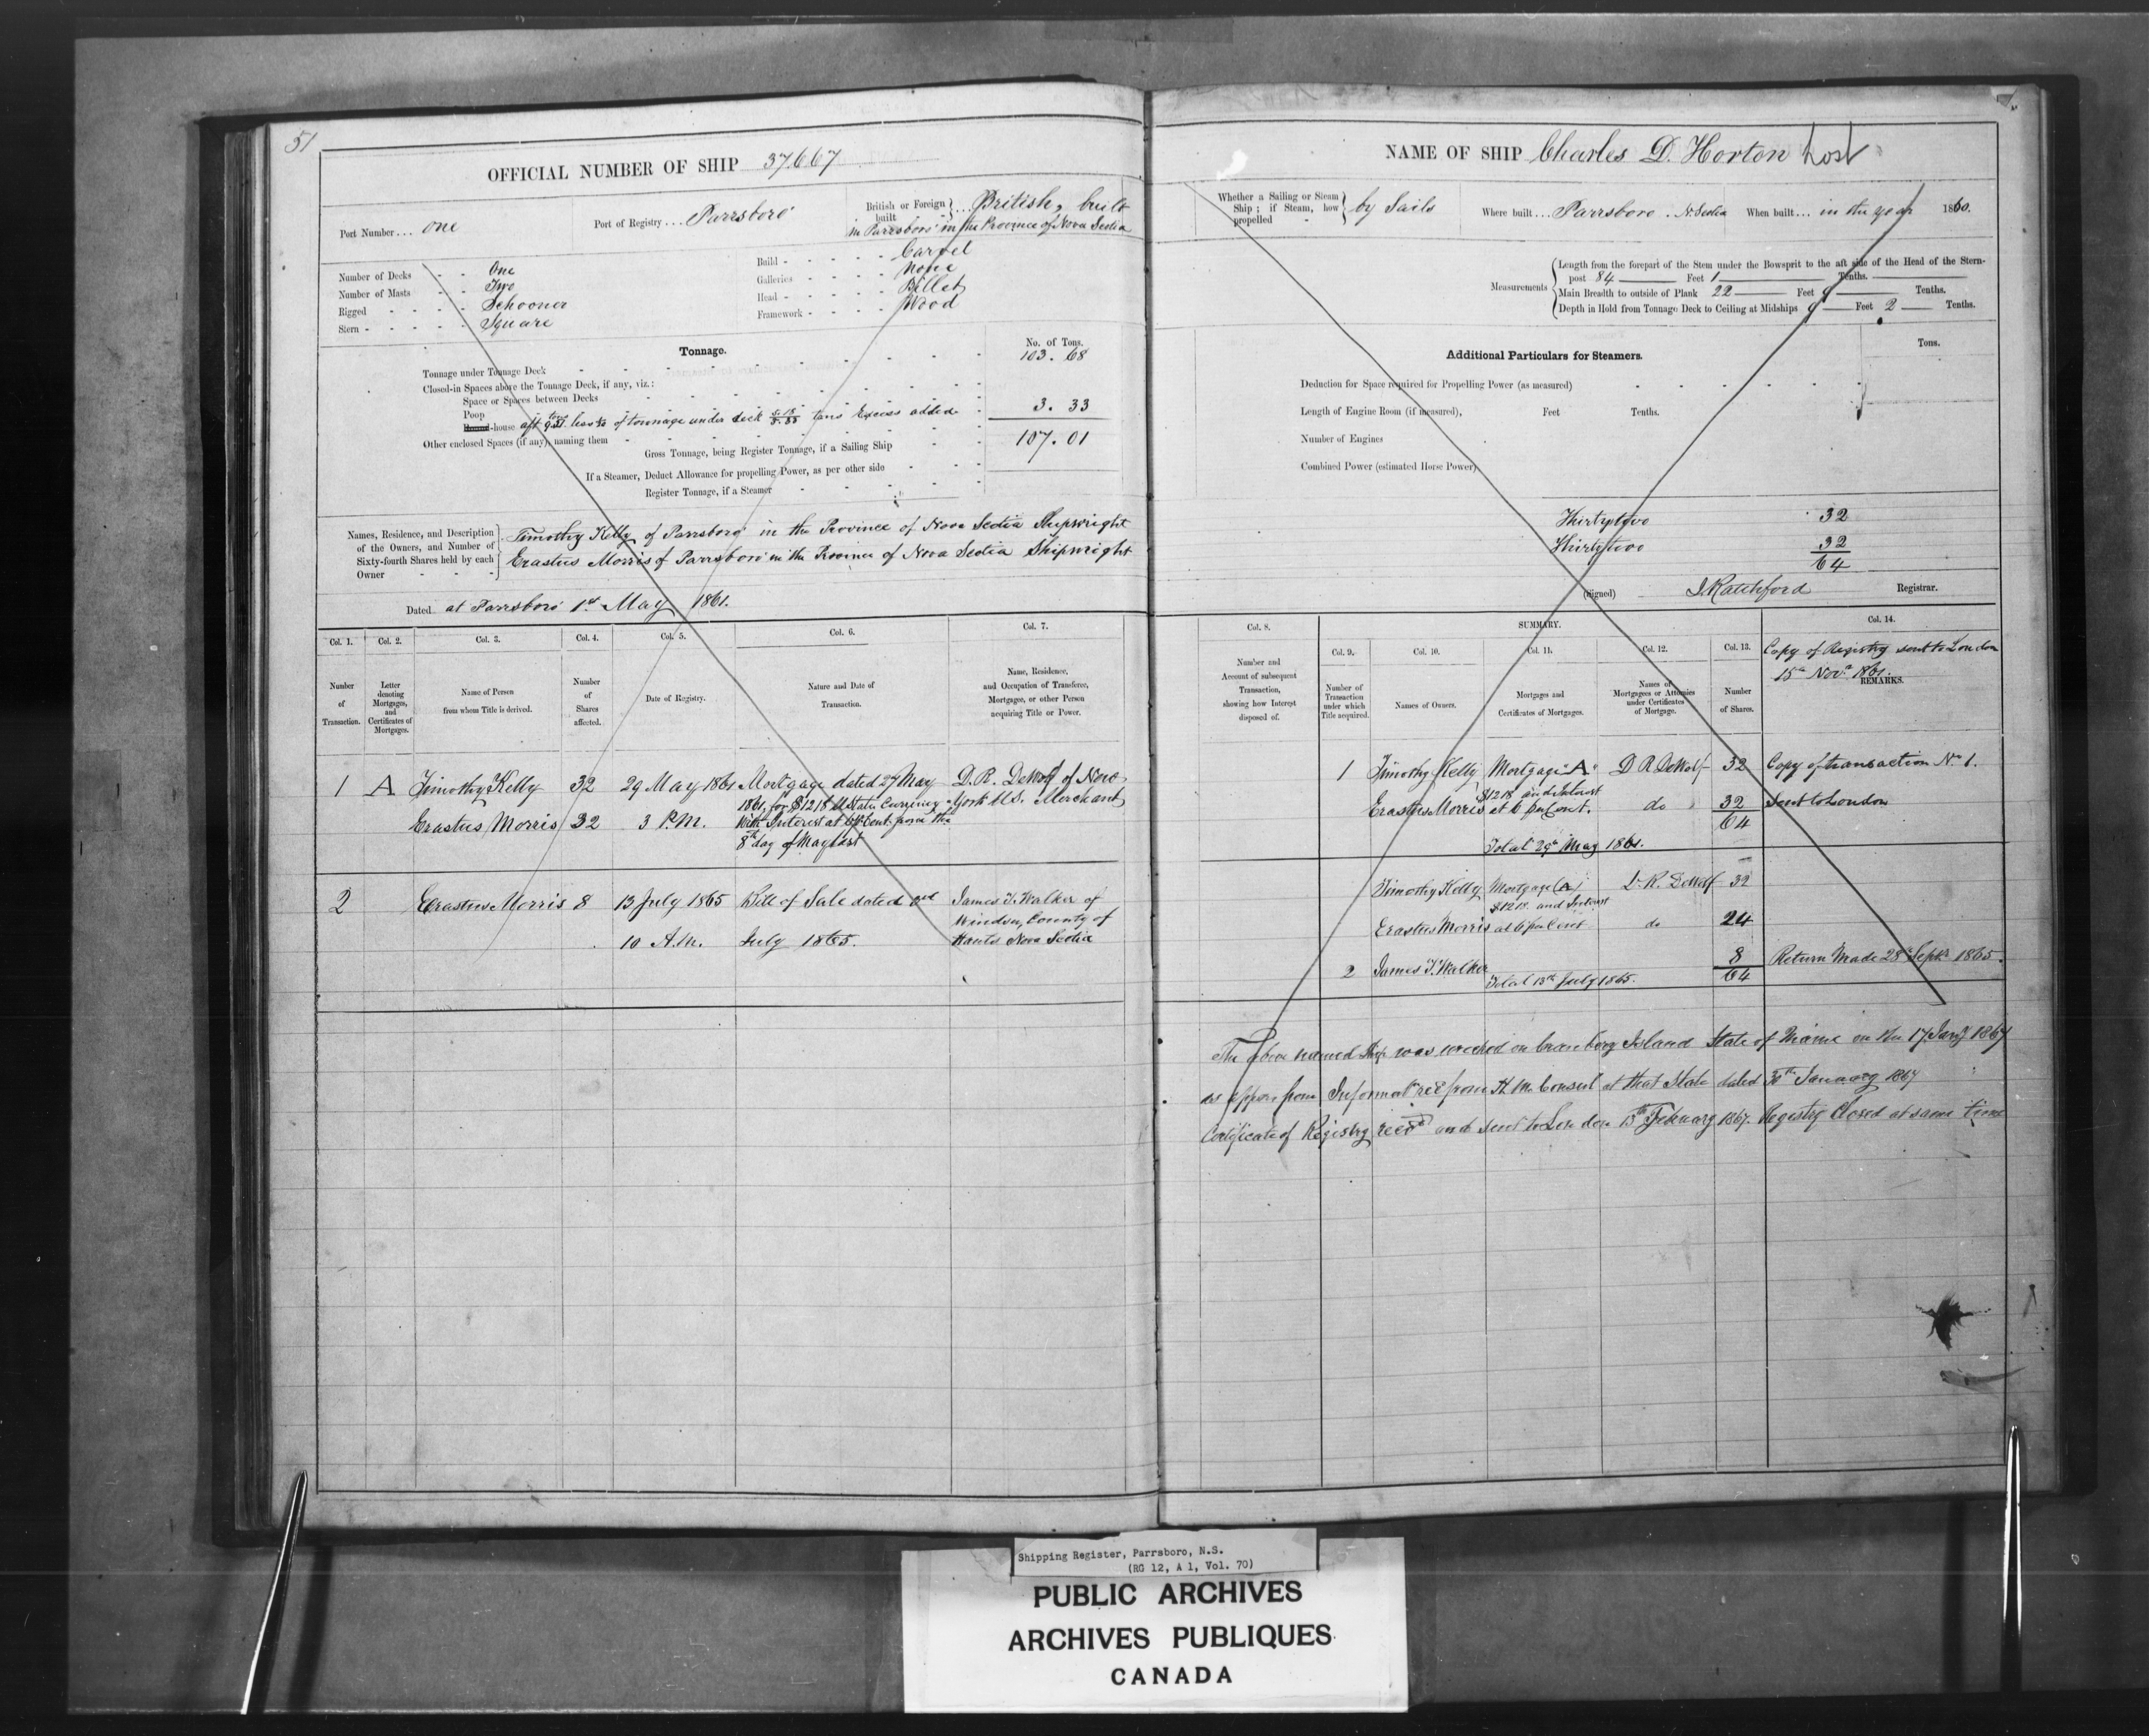 51
OFFICIAL NUMBER OF SHIP 37.667
Port Number... one
Port of Registry... Parrsboro
British or Foreign built } ... British, built
in Parrsboro in the Province of Nova Scotia
Number of Decks - - One
Number of Masts - - Two
Rigged - - - - Schooner
Stern - - - - - Square
Build - - - - - Carvel
Galleries - - - - None
Head - - - - - Billet
Framework - - - - Wood
Tonnage.
No. of Tons.
Tonnage under Tonnage Deck 103.68
Closed-in Spaces above the Tonnage Deck, if any, viz.:
Space or Spaces between Decks
Poop
-house aft less of tonnage under deck tons Excess added 3.33
Other enclosed Spaces (if any), naming them
Gross Tonnage, being Register Tonnage, if a Sailing Ship 107.01
If a Steamer, Deduct Allowance for propelling Power, as per other side
Register Tonnage, if a Steamer
Names, Residence, and Description of the Owners, and Number of Sixty-fourth Shares held by each Owner
Timothy Kelly of Parrsboro in the Province of Nova Scotia Shipwright
Erastus Morris of Parrsboro in the Province of Nova Scotia Shipwright
Dated at Parrsboro 1st May 1861.
Col. 1. Col. 2. Col. 3. Col. 4. Col. 5. Col. 6. Col. 7.
Number of Transaction.
Letter denoting Mortgages, and Certificates of Mortgages.
Name of Person from whom Title is derived.
Number of Shares affected.
Date of Registry.
Nature and Date of Transaction.
Name, Residence, and Occupation of Transferee, Mortgagee, or other Person acquiring Title or Power.
1 A Timothy Kelly 32 29 May 1861 Mortgage dated 27 May D. R. DeWolf of New
1861, for $1218 U States Currency York U.S. Merchant
Erastus Morris 32 3 P.M. With Interest at 6 pr Cent from the
8th day of May last
2 Erastus Morris 8 13 July 1865 Bill of Sale dated 3rd James T. Walker of
Windsor, County of
10 A.M. July 1865. Hants Nova Scotia
NAME OF SHIP Charles D. Horton Lost
Whether a Sailing or Steam Ship; if Steam, how propelled } by Sails
Where built... Parrsboro. N. Scotia
When built... in the year 1860.
Measurements
Length from the forepart of the Stem under the Bowsprit to the aft side of the Head of the Stern-
post 84 Feet 1 Tenths.
Main Breadth to outside of Plank 22 Feet 9 Tenths.
Depth in Hold from Tonnage Deck to Ceiling at Midships 9 Feet 2 Tenths.
Additional Particulars for Steamers.
Tons.
Deduction for Space required for Propelling Power (as measured)
Length of Engine Room (if measured), Feet Tenths.
Number of Engines
Combined Power (estimated Horse Power)
Thirtytwo 32
Thirtytwo 32
64
(Signed) J Ratchford Registrar.
Col. 8. SUMMARY. Col. 14.
Col. 9. Col. 10. Col. 11. Col. 12. Col. 13.
Number and Account of subsequent Transaction, showing how Interest disposed of.
Number of Transaction under which Title acquired.
Names of Owners.
Mortgages and Certificates of Mortgages.
Names of Mortgagees or Attornies under Certificates of Mortgage.
Number of Shares.
Copy of Registry sent to London
15th Novr 1861.
REMARKS.
1 Timothy Kelly Mortgage "A" D R DeWolf 32 Copy of transaction No 1.
$1218 and Interest
Erastus Morris at 6 per Cent. do 32 Sent to London
64
Total 29th May 1861.
Timothy Kelly Mortgage (A) D. R. DeWolf 32
$1218. and Interest
Erastus Morris at 6 per Cent do 24
2 James T. Walker 8 Return Made 28 Septr 1865.
Total 13th July 1865. 64
The above named Ship was wrecked on Cranberry Island State of Maine on the 17 Jany 1867
as appears from Informatn recd from H. M. Consul at that State dated 30th January 1867
Certificate of Registry recvd and sent to London 15th February 1867. Registry Closed at same time
Shipping Register, Parrsboro, N.S.
(RG 12, A 1, Vol. 70)
PUBLIC ARCHIVES
ARCHIVES PUBLIQUES
CANADA